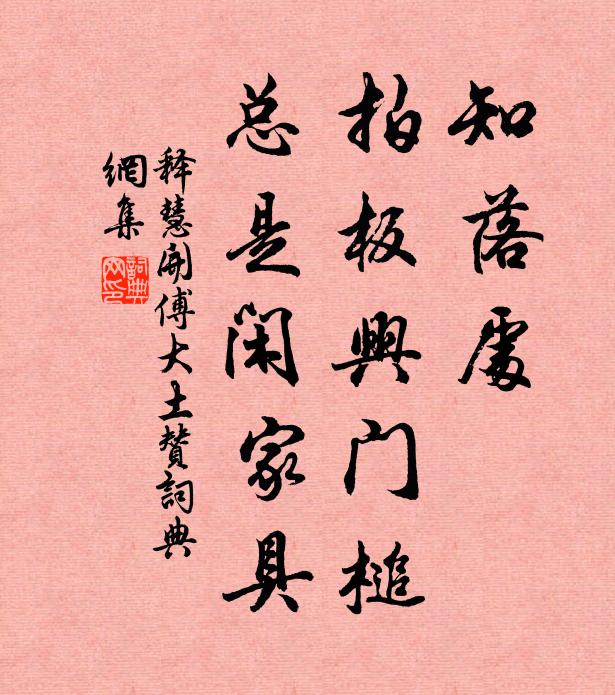 知落处
拍板兴门槌
总是闲家具
释慧开傅大士赞词典
网集
词典
网印